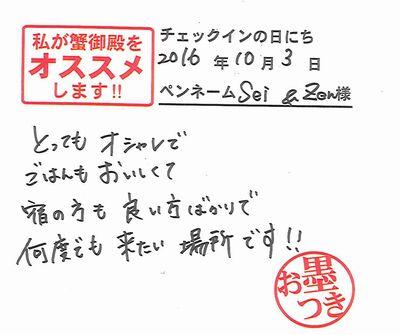 私が蟹御殿を
オススメ
します!!
チェックインの日にち
2016 年 10 月 3 日
ペンネーム Sei & Zen様
とっても オシャレで
ごはんも おいしくて
宿の方も 良い方ばかりで
何度でも 来たい 場所です!!
お墨つき